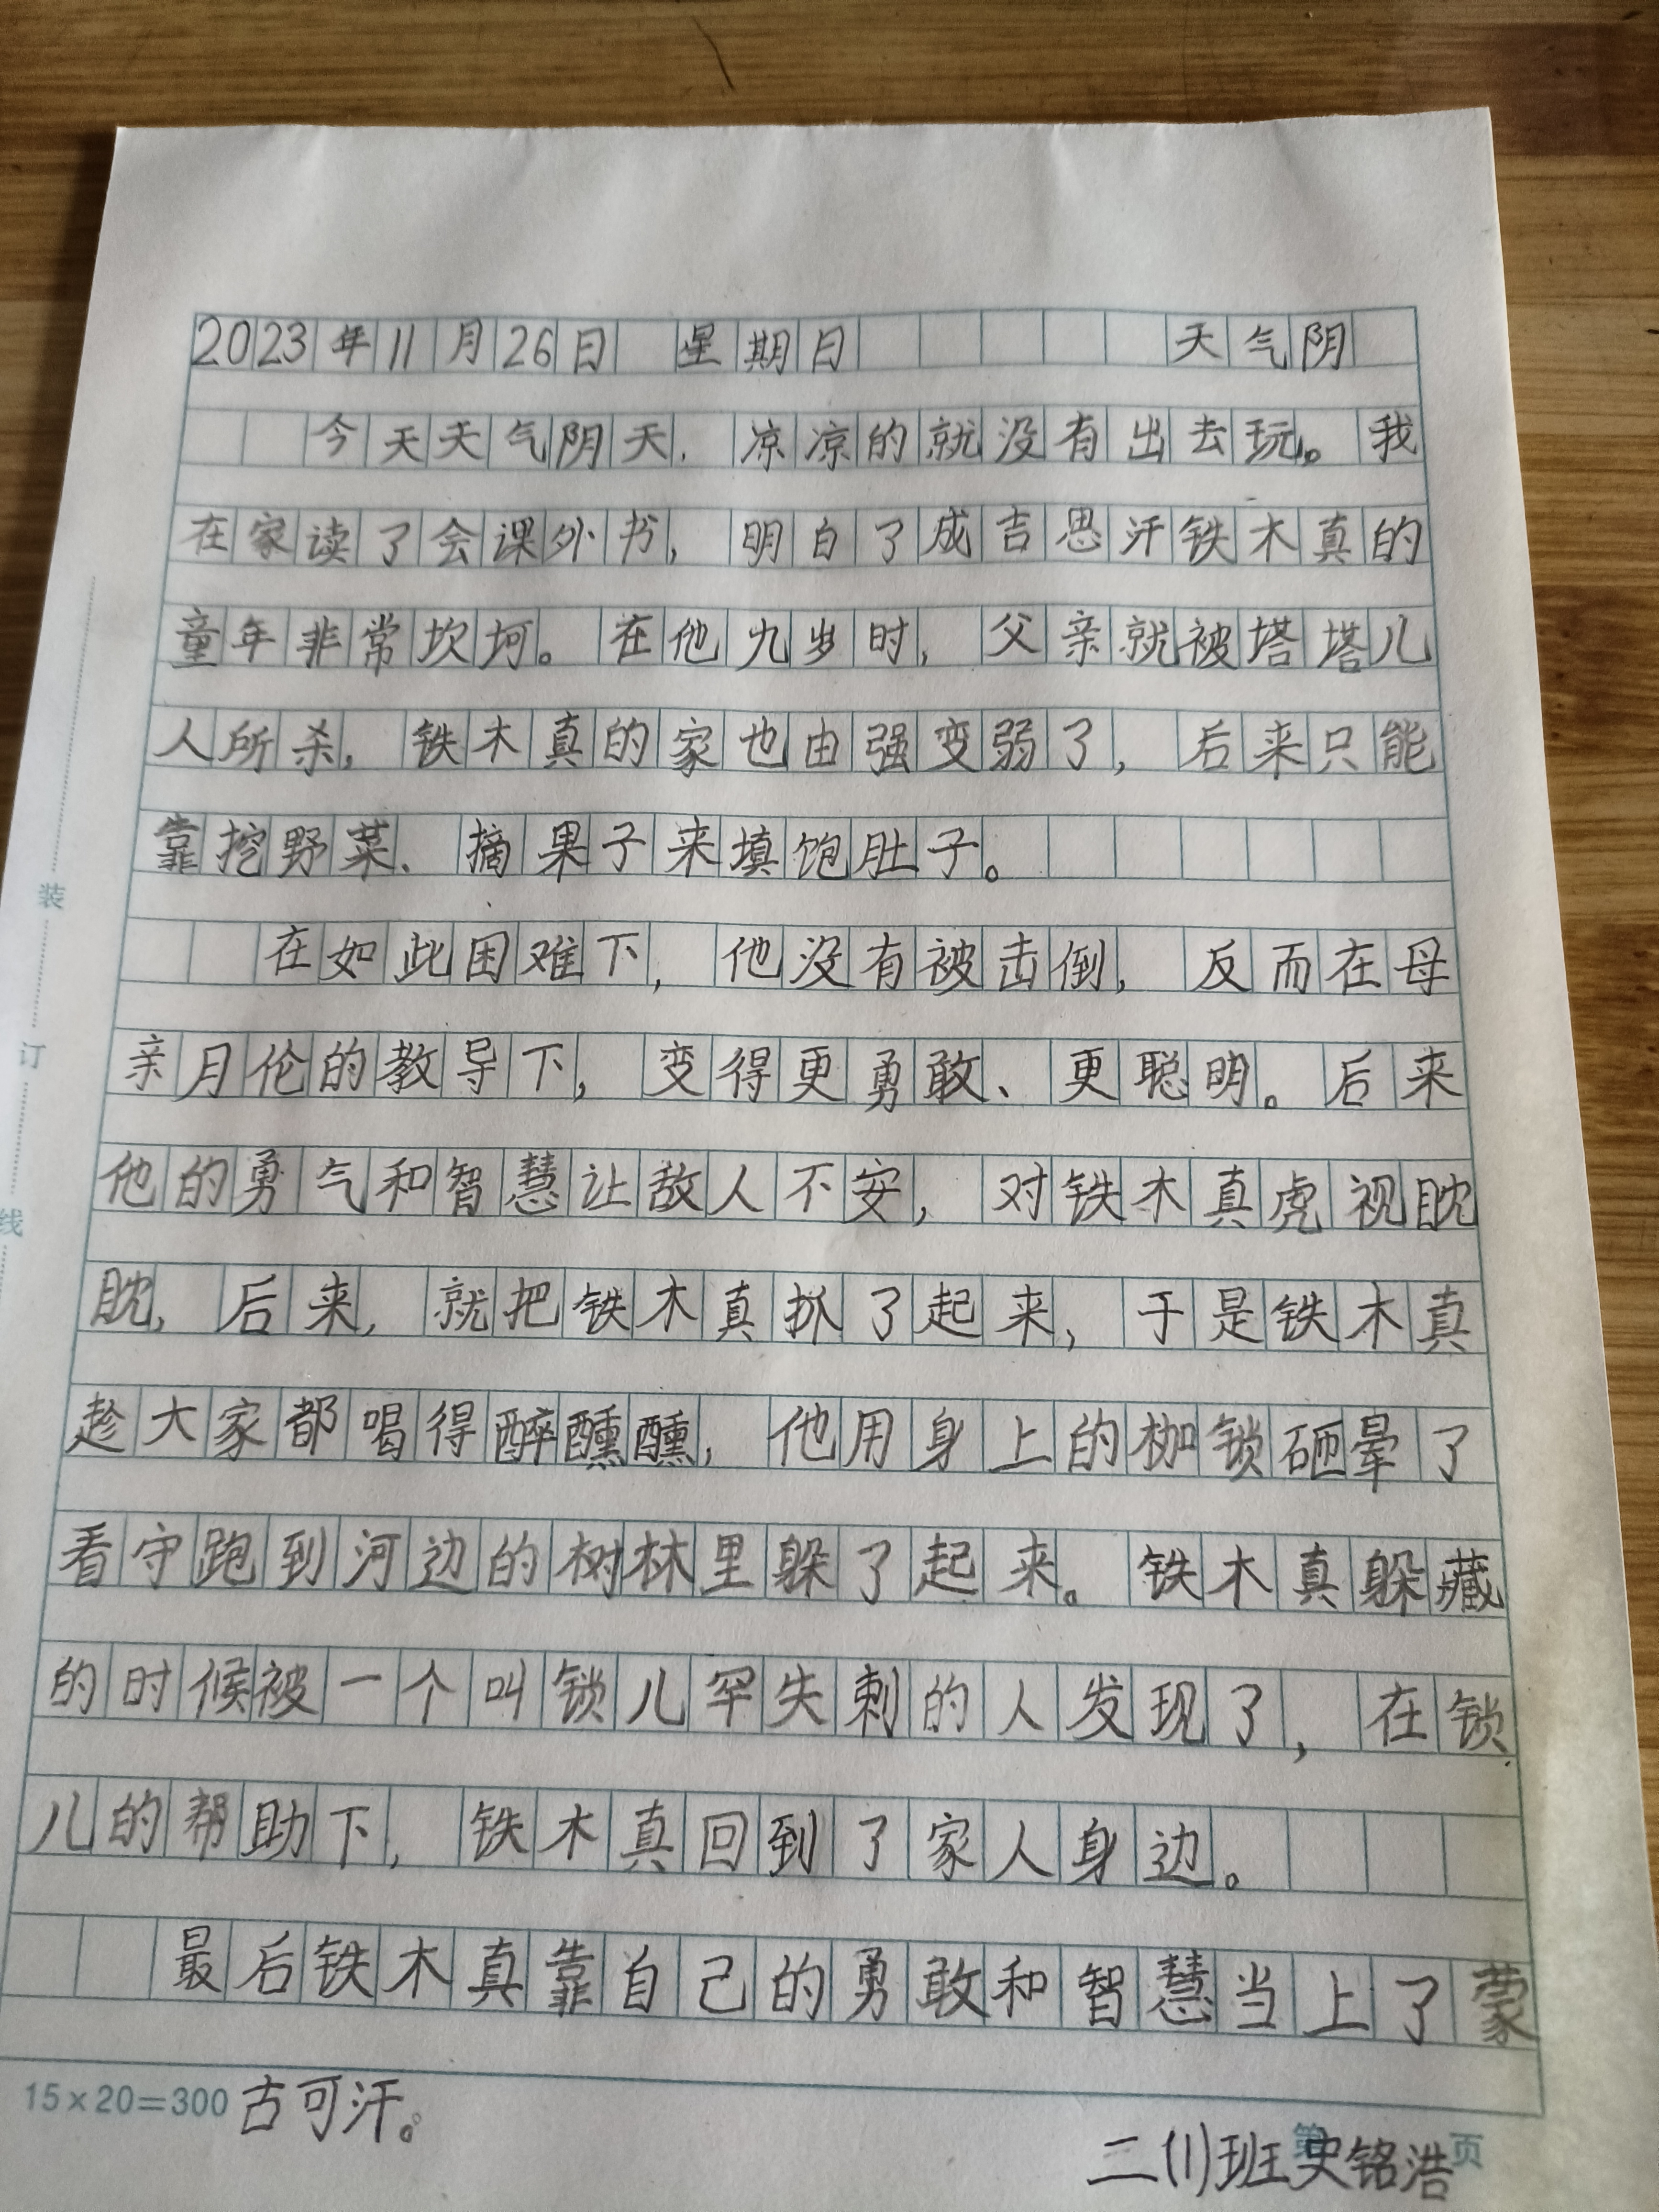 2023年11月26日 星期日 天气阴
今天天气阴天，凉凉的就没有出去玩。我
在家读了会课外书，明白了成吉思汗铁木真的
童年非常坎坷。在他九岁时，父亲就被塔塔儿
人所杀，铁木真的家也由强变弱了，后来只能
靠挖野菜、摘果子来填饱肚子。
在如此困难下，他没有被击倒，反而在母
亲月伦的教导下，变得更勇敢、更聪明。后来
他的勇气和智慧让敌人不安，对铁木真虎视眈
眈，后来，就把铁木真抓了起来，于是铁木真
趁大家都喝得醉醺醺，他用身上的枷锁砸晕了
看守跑到河边的树林里躲了起来。铁木真躲藏
的时候被一个叫锁儿罕失刺的人发现了，在锁
儿的帮助下，铁木真回到了家人身边。
最后铁木真靠自己的勇敢和智慧当上了蒙
15×20=300 古可汗。
第 页
二(1)班史铭浩
装
订
线